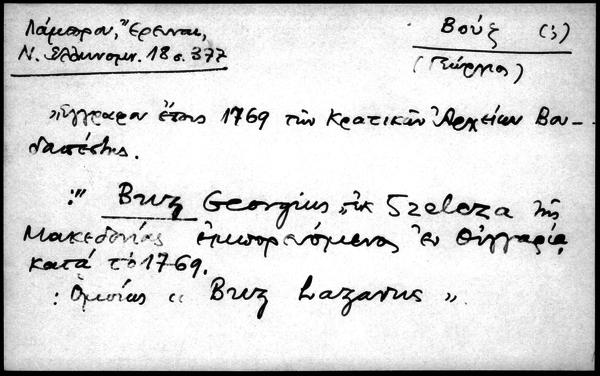 Λάμπρου, "Έρευναι,
Ν. Ἑλληνομν. 18 σ. 377
Βούζ (;)
(Γεώργιος)
"Ἔγγραφον ἔτους 1769 τῶν Κρατικῶν Ἀρχείων Βου-
δαπέστης.
:" Bwz Georgius "ἐκ Szeleza τῆς
Μακεδονίας ἐμπορευόμενος ἐν Οὑγγαρίᾳ
κατά τὸ 1769.
: Ὁμοίως " Bwz Lazarus ".